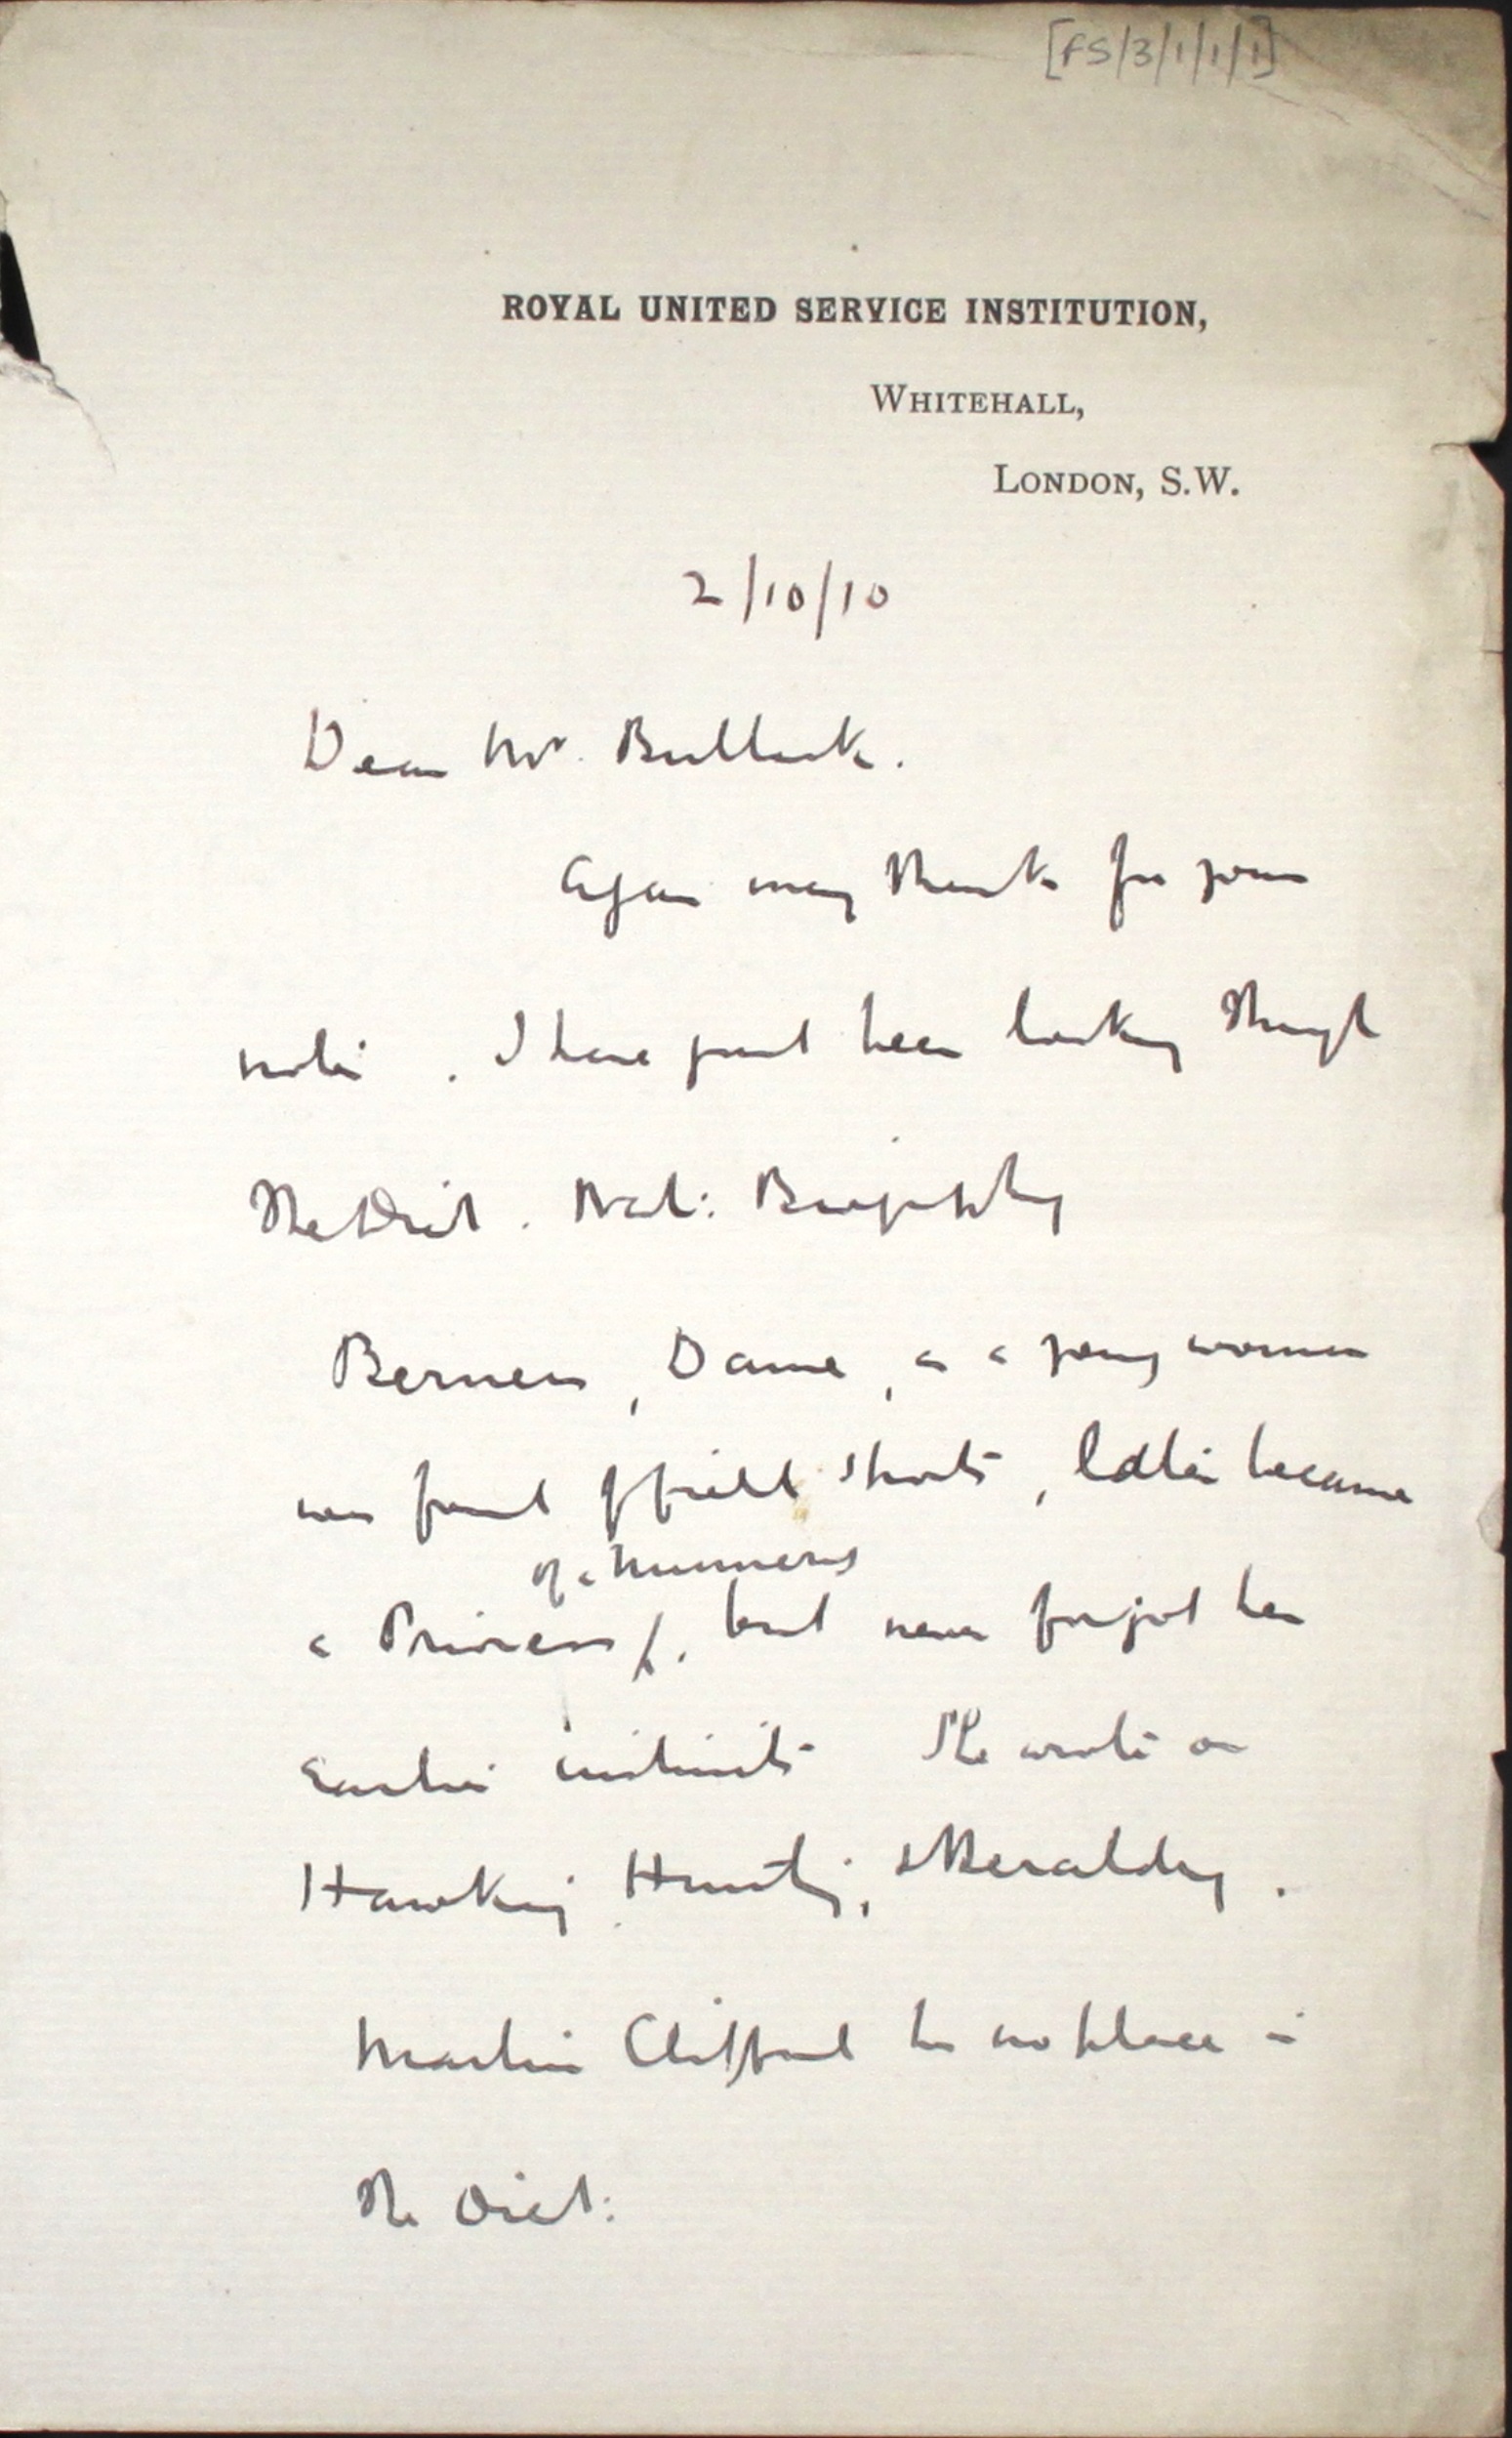 [FS/3/1/1/1]
ROYAL UNITED SERVICE INSTITUTION,
WHITEHALL,
LONDON, S.W.
2/10/10
Dear Mr. Bullock.
Again many thanks for your
note . I have just been looking through
the Dict . Nat: Biography
Berners , Dame , as a young woman
was fond of field sports , later became
of a Nunnery
a Prioress /, but never forgot her
earlier instincts She wrote on
Hawking Hunting, & Heraldry .
Martin Clifford has no place in
the Dict: